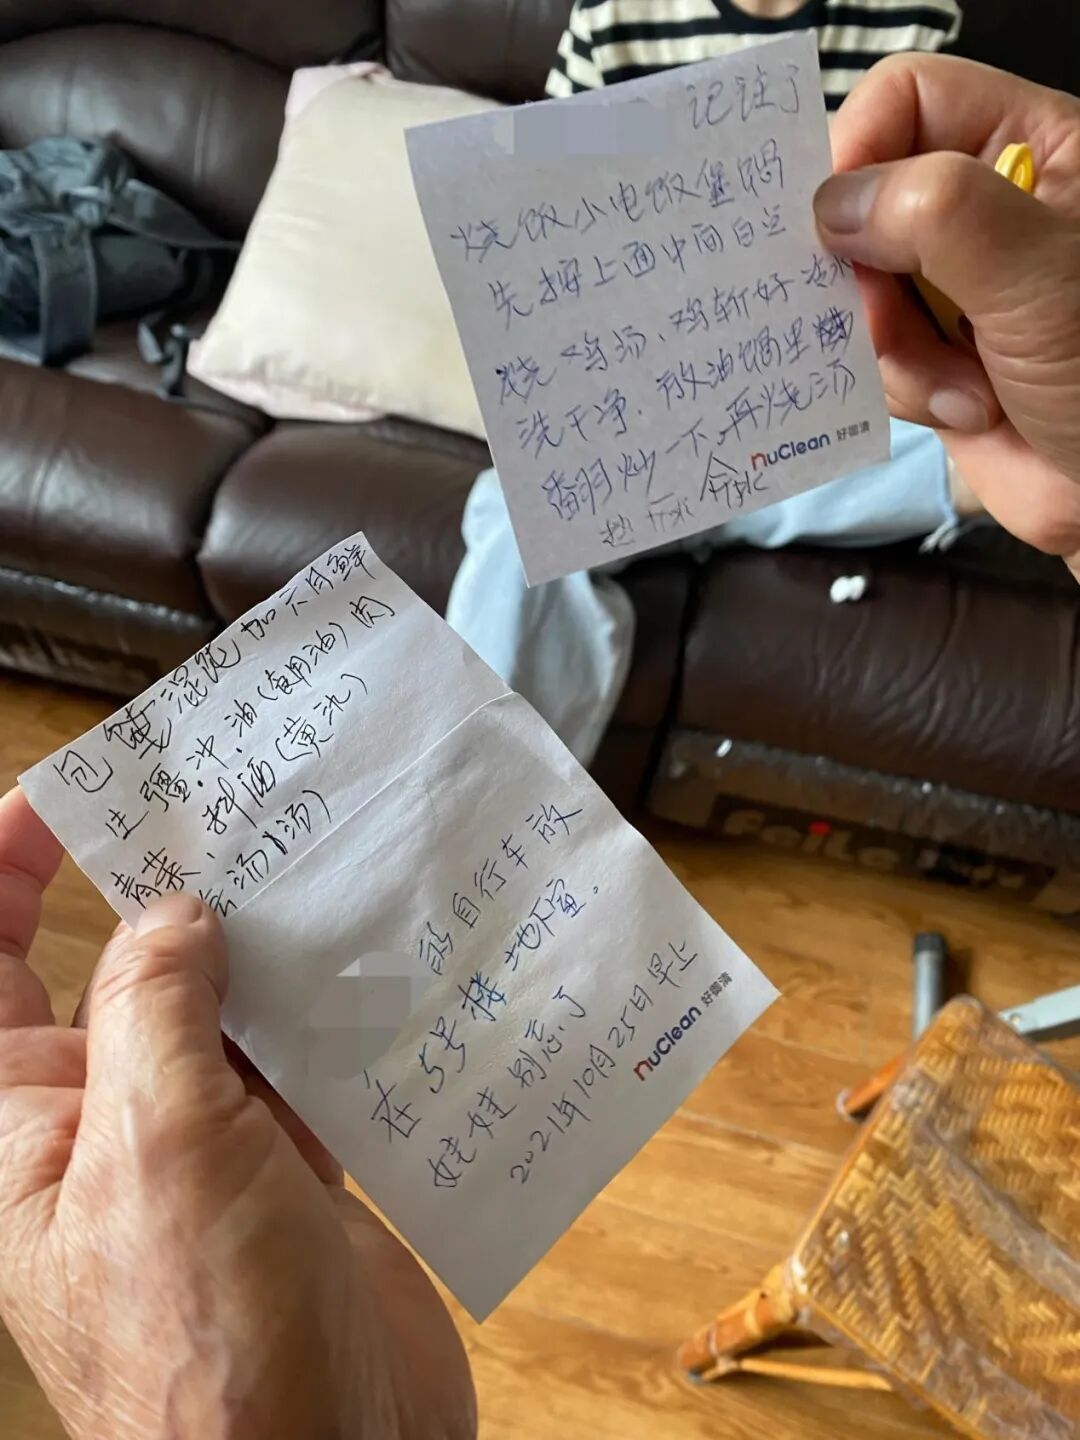 记注了
烧饭小电饭煲锅
先按上面中间白色
烧鸡汤、鸡斩好冷水
洗干净.放油锅里
翻炒一下.再烧汤
nuClean 好御清
包馄饨加六月鲜
生疆.冲.油(食用油)肉
青菜、料酒(黄氿)
汤)
的自行车放
在5号楼地下室。
娃娃别忘了
2021年10月25日早上
nuClean 好御清